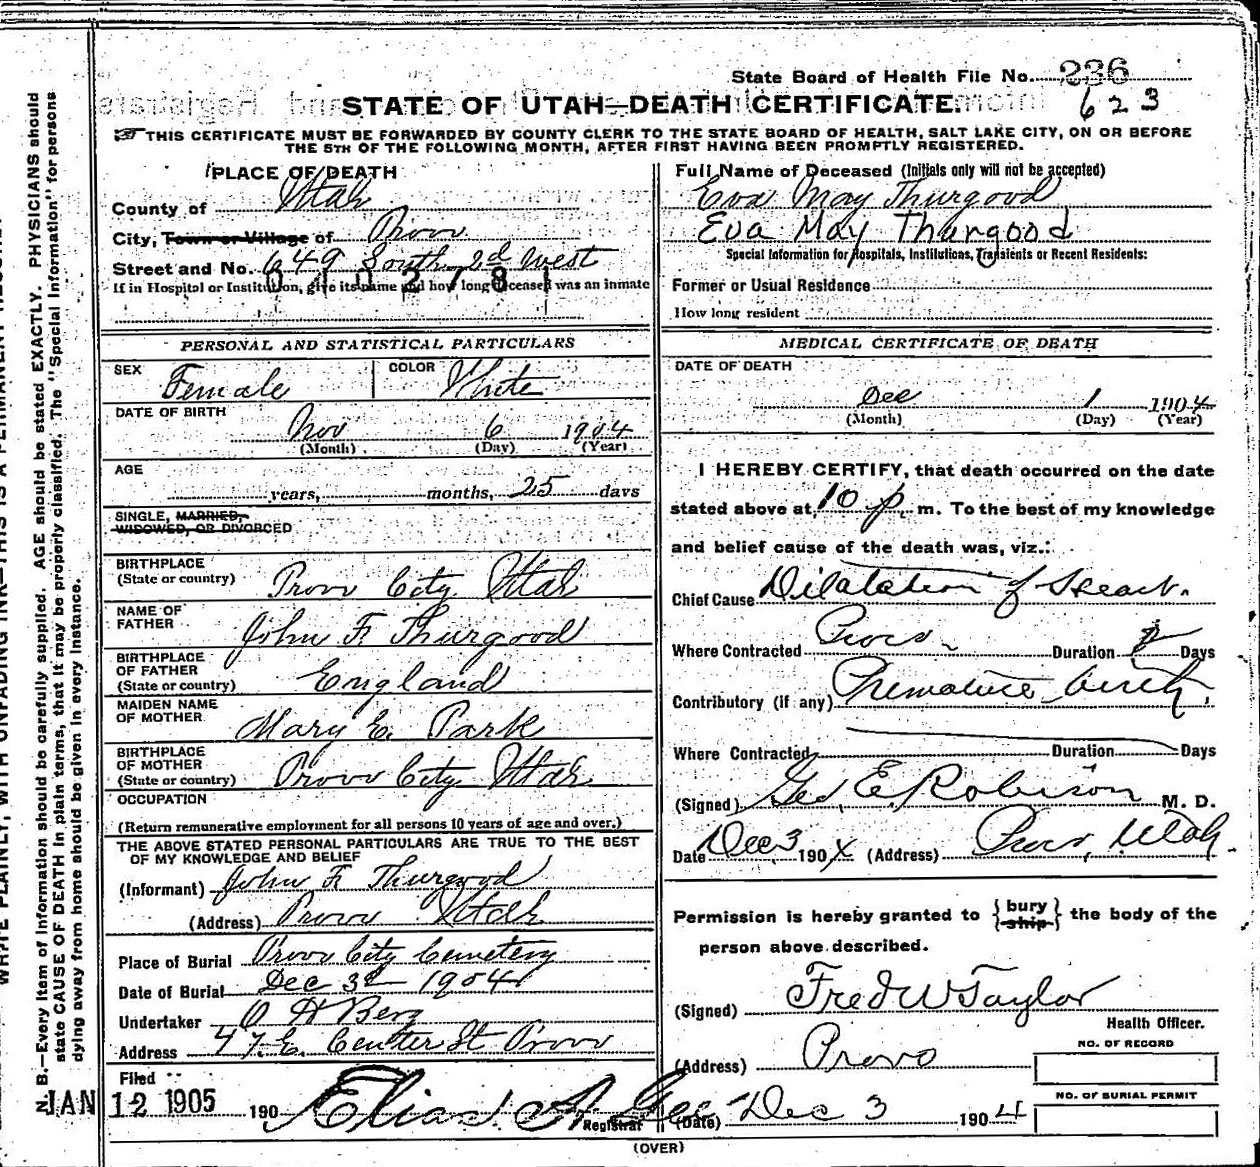 State Board of Health File No. 236
623
STATE OF UTAH—DEATH CERTIFICATE.
THIS CERTIFICATE MUST BE FORWARDED BY COUNTY CLERK TO THE STATE BOARD OF HEALTH, SALT LAKE CITY, ON OR BEFORE
THE 5TH OF THE FOLLOWING MONTH, AFTER FIRST HAVING BEEN PROMPTLY REGISTERED.
PLACE OF DEATH
County of Utah
City, Town or Village of Provo
Street and No. 649 South 2d West
If in Hospital or Institution, give its name and how long deceased was an inmate
0402781
Full Name of Deceased (Initials only will not be accepted)
Eva May Thurgood
Eva May Thurgood
Special Information for Hospitals, Institutions, Transients or Recent Residents:
Former or Usual Residence
How long resident
PERSONAL AND STATISTICAL PARTICULARS
SEX Female COLOR White
DATE OF BIRTH
Nov 6 1904
(Month) (Day) (Year)
AGE
years, months, 25 days
SINGLE, MARRIED,
WIDOWED, OR DIVORCED
BIRTHPLACE
(State or country) Provo City Utah
NAME OF
FATHER John F. Thurgood
BIRTHPLACE
OF FATHER
(State or country) England
MAIDEN NAME
OF MOTHER Mary E. Park
BIRTHPLACE
OF MOTHER
(State or country) Provo City Utah
OCCUPATION
(Return remunerative employment for all persons 10 years of age and over.)
THE ABOVE STATED PERSONAL PARTICULARS ARE TRUE TO THE BEST
OF MY KNOWLEDGE AND BELIEF
(Informant) John F. Thurgood
(Address) Provo Utah
Place of Burial Provo City Cemetery
Date of Burial Dec 3d 1904
Undertaker O H Berg
Address 47. E. Center St Provo
Filed
JAN 12 1905 190 Elias A. Gee
Registrar
MEDICAL CERTIFICATE OF DEATH
DATE OF DEATH
Dec 1 1904
(Month) (Day) (Year)
I HEREBY CERTIFY, that death occurred on the date
stated above at 10 p. m. To the best of my knowledge
and belief cause of the death was, viz.:
Chief Cause Dilatation of Heart.
Where Contracted Provo Duration Days
Contributory (if any) Premature birth.
Where Contracted Duration Days
(Signed) Geo. E. Robison M. D.
Date Dec 3 1904 (Address) Provo, Utah.
Permission is hereby granted to {bury ship} the body of the
person above described.
(Signed) Fred W Taylor
Health Officer.
(Address) Provo
NO. OF RECORD
NO. OF BURIAL PERMIT
(Date) Dec 3 1904
(OVER)
N. B.—Every item of information should be carefully supplied. AGE should be stated EXACTLY. PHYSICIANS should
state CAUSE OF DEATH in plain terms, that it may be properly classified. The "Special Information" for persons
dying away from home should be given in every instance.